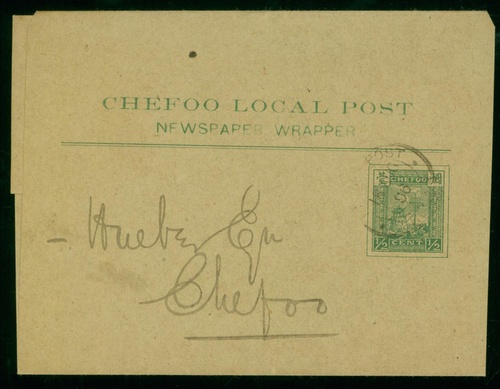 CHEFOO LOCAL POST
NEWSPAPER WRAPPER
POST
CHEFOO
½ CENT. ½
Chefoo